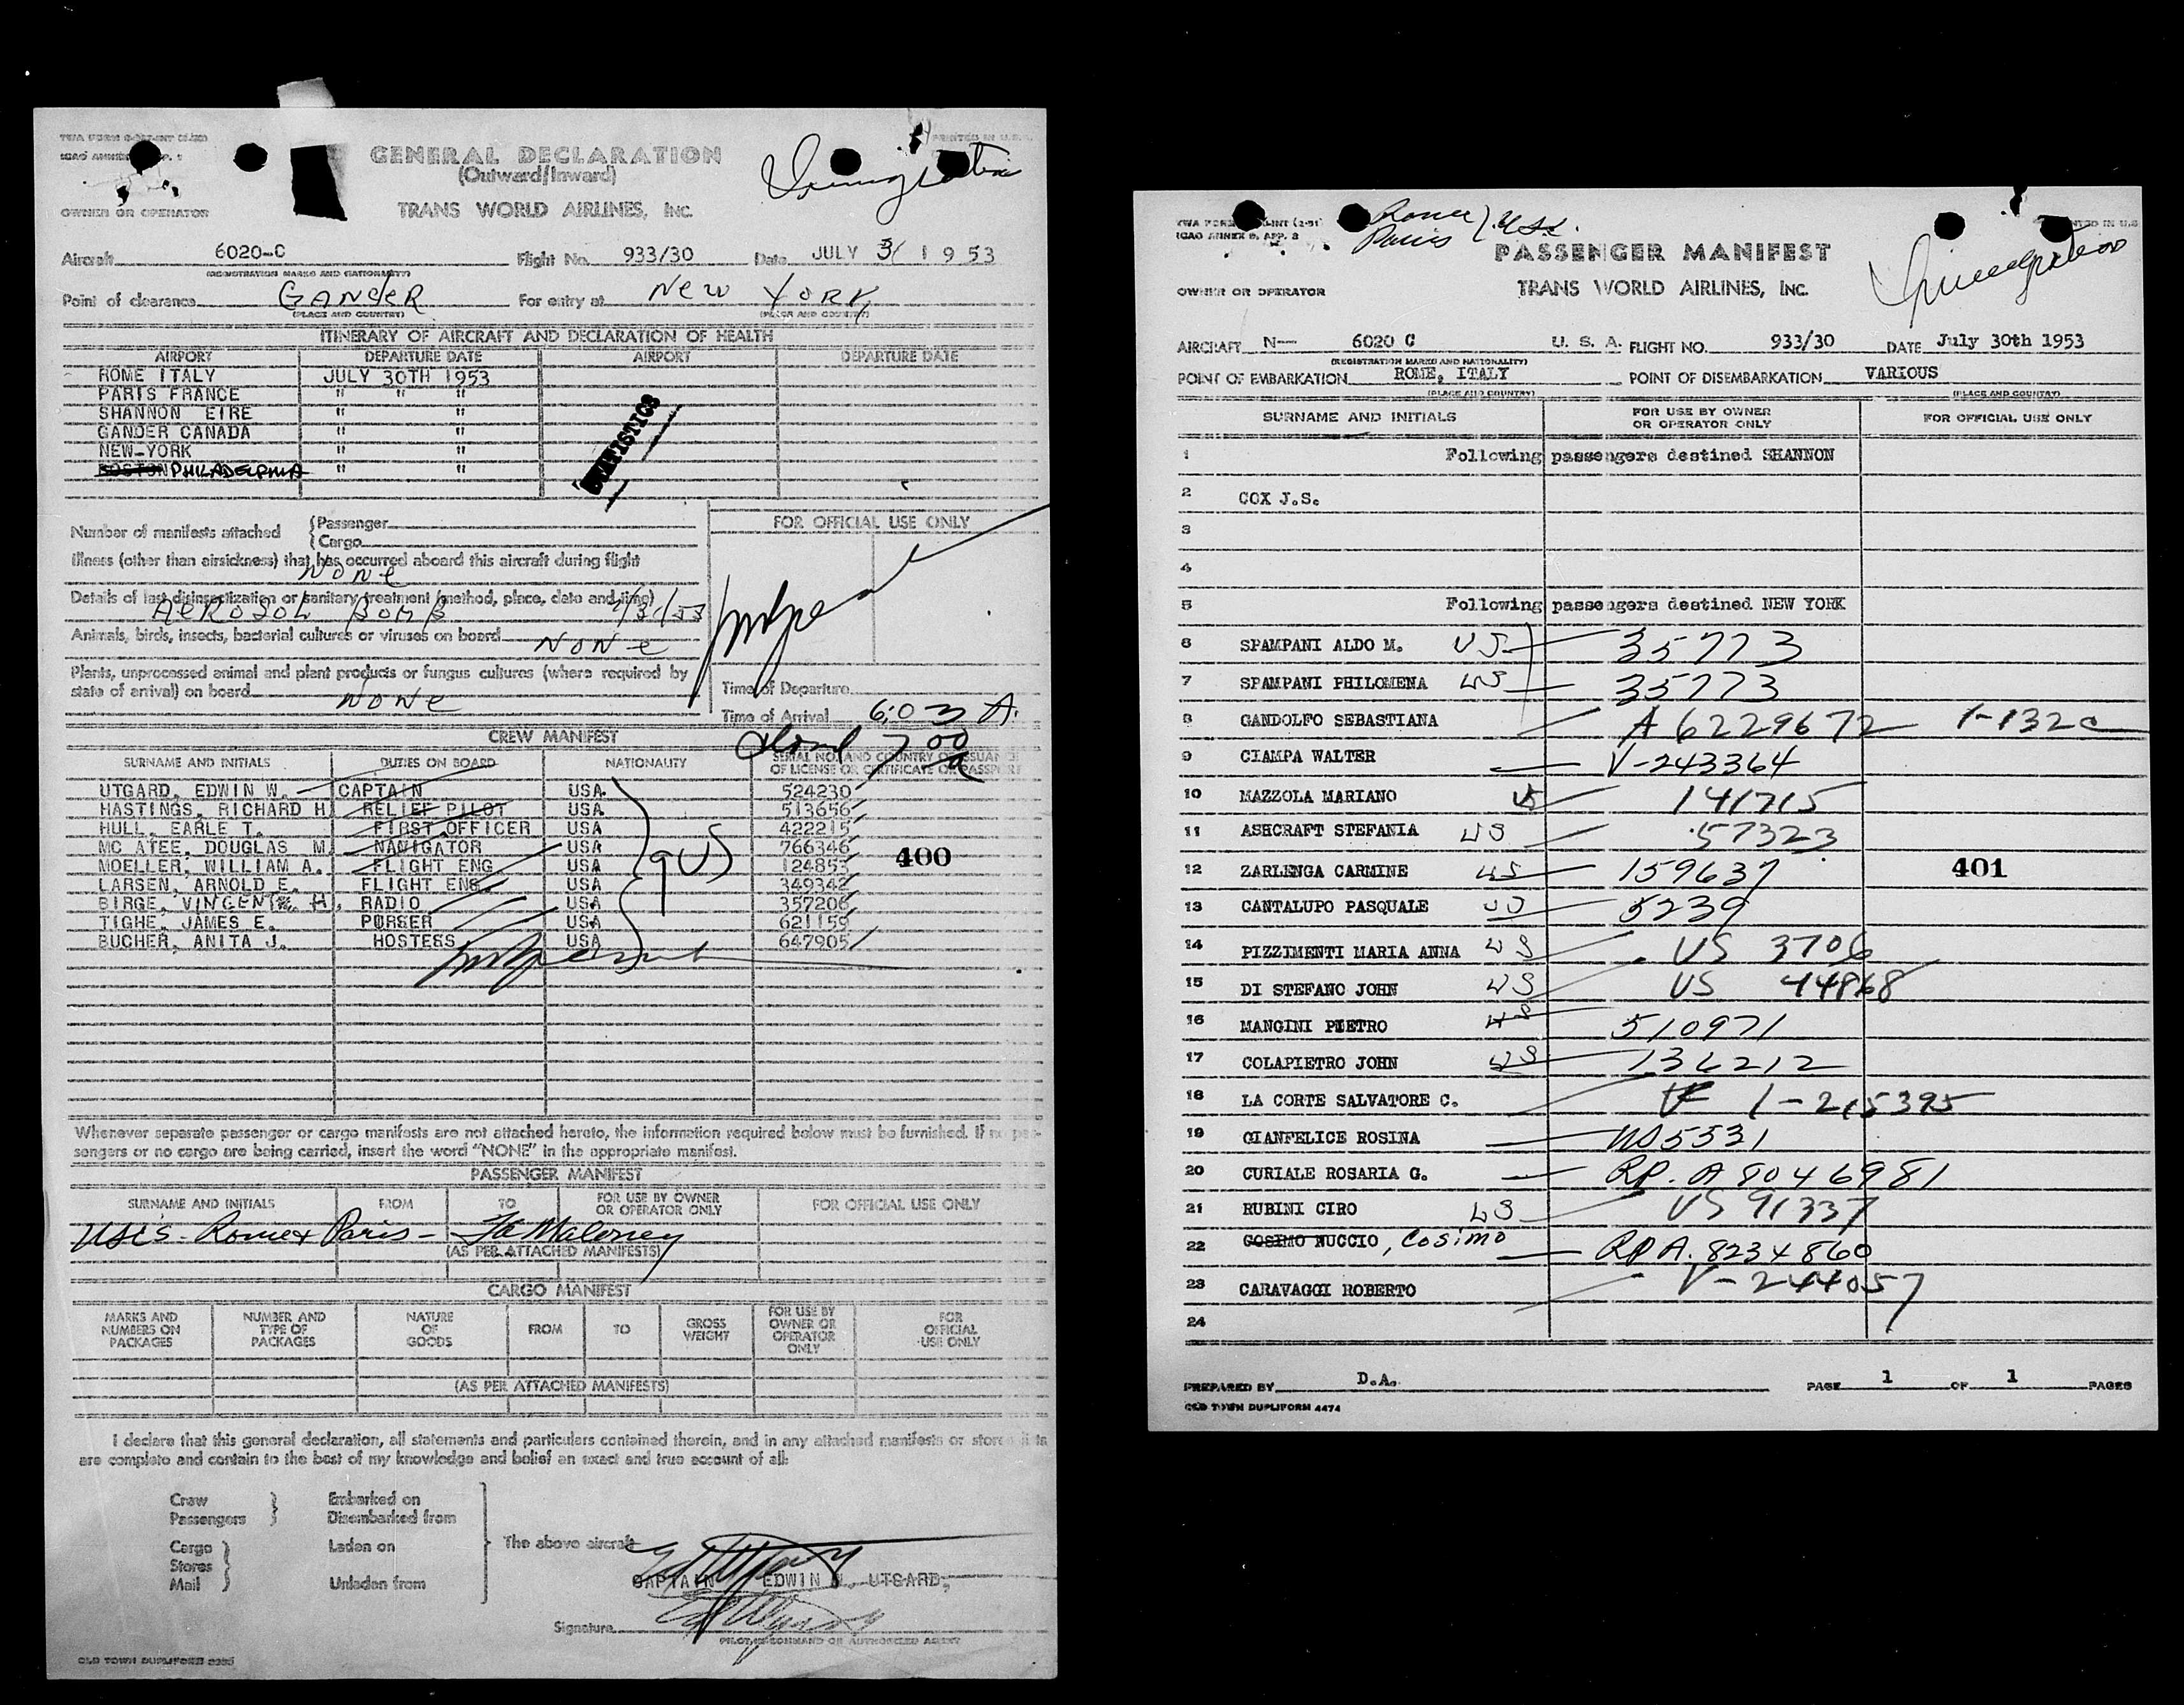 GENERAL DECLARATION
(Outward/Inward)
Immigration
OWNER OR OPERATOR TRANS WORLD AIRLINES, INC.
Aircraft 6020-C Flight No. 933/30 Date JULY 31 1953
(REGISTRATION MARKS AND NATIONALITY)
Point of clearance GANDER For entry at NEW YORK
(PLACE AND COUNTRY) (PLACE AND COUNTRY)
ITINERARY OF AIRCRAFT AND DECLARATION OF HEALTH
AIRPORT DEPARTURE DATE AIRPORT DEPARTURE DATE
ROME ITALY JULY 30TH 1953
PARIS FRANCE " " "
SHANNON EIRE " "
GANDER CANADA " "
NEW-YORK " "
BOSTON PHILADELPHIA " "
STATISTICS
Number of manifests attached Passenger
Cargo
FOR OFFICIAL USE ONLY
Illness (other than airsickness) that has occurred aboard this aircraft during flight
NONE
Details of last disinsectization or sanitary treatment (method, place, date and time)
AEROSOL BOMB 7/31/53
Animals, birds, insects, bacterial cultures or viruses on board NONE
Plants, unprocessed animal and plant products or fungus cultures (where required by
state of arrival) on board NONE
Time of Departure
Time of Arrival 6:03 A.
700 a
CREW MANIFEST
SURNAME AND INITIALS DUTIES ON BOARD NATIONALITY SERIAL NO. AND COUNTRY OF ISSUANCE
OF LICENSE OR CERTIFICATE OR PASSPORT
UTGARD, EDWIN W. CAPTAIN USA 524230
HASTINGS, RICHARD H RELIEF PILOT USA 513656
HULL, EARLE T. FIRST OFFICER USA 422215
MC ATEE, DOUGLAS M. NAVIGATOR USA 766346
MOELLER, WILLIAM A. FLIGHT ENG USA 124853
LARSEN, ARNOLD E. FLIGHT ENG USA 349342
BIRGE, VINCENT H, RADIO USA 357206
TIGHE, JAMES E. PURSER USA 621159
BUCHER, ANITA J. HOSTESS USA 647905
9 US
400
Whenever separate passenger or cargo manifests are not attached hereto, the information required below must be furnished. If no pas-
sengers or no cargo are being carried, insert the word "NONE" in the appropriate manifest.
PASSENGER MANIFEST
SURNAME AND INITIALS FROM TO FOR USE BY OWNER OR OPERATOR ONLY FOR OFFICIAL USE ONLY
USCS - Rome & Paris - Maloney
(AS PER ATTACHED MANIFESTS)
CARGO MANIFEST
MARKS AND NUMBERS ON PACKAGES NUMBER AND TYPE OF PACKAGES NATURE OF GOODS FROM TO GROSS WEIGHT FOR USE BY OWNER OR OPERATOR ONLY FOR OFFICIAL USE ONLY
(AS PER ATTACHED MANIFESTS)
I declare that this general declaration, all statements and particulars contained therein, and in any attached manifests or stores lists
are complete and contain to the best of my knowledge and belief an exact and true account of all:
Crew Embarked on
Passengers Disembarked from
Cargo Laden on
Stores
Mail Unladen from
The above aircraft
CAPTAIN EDWIN W. UTGARD,
Signature
PILOT IN COMMAND OR AUTHORIZED AGENT
OLD TOWN DUPLIFORM
Rome
Paris
PASSENGER MANIFEST
Immigration
OWNER OR OPERATOR TRANS WORLD AIRLINES, INC.
AIRCRAFT N-- 6020 C U. S. A. FLIGHT NO. 933/30 DATE July 30th 1953
(REGISTRATION MARKS AND NATIONALITY)
POINT OF EMBARKATION ROME, ITALY POINT OF DISEMBARKATION VARIOUS
(PLACE AND COUNTRY) (PLACE AND COUNTRY)
SURNAME AND INITIALS FOR USE BY OWNER OR OPERATOR ONLY FOR OFFICIAL USE ONLY
1 Following passengers destined SHANNON
2 COX J.S.
3
4
5 Following passengers destined NEW YORK
6 SPAMPANI ALDO M. US 35773
7 SPAMPANI PHILOMENA US 35773
8 GANDOLFO SEBASTIANA A 6229672 1-132c
9 CIAMPA WALTER V-243364
10 MAZZOLA MARIANO US 141715
11 ASHCRAFT STEFANIA US 57323
12 ZARLENGA CARMINE US 159637
401
13 CANTALUPO PASQUALE US 5239
14 PIZZIMENTI MARIA ANNA US US 3706
15 DI STEFANO JOHN US US 44868
16 MANGINI PIETRO US 510971
17 COLAPIETRO JOHN US 136212
18 LA CORTE SALVATORE C. 1-215395
19 GIANFELICE ROSINA US 5531
20 CURIALE ROSARIA G. RP. A 8046981
21 RUBINI CIRO US US 91337
22 COSIMO NUCCIO, Cosimo RP A. 8234860
23 CARAVAGGI ROBERTO V-244057
24
PREPARED BY D.A. PAGE 1 OF 1 PAGES
OLD TOWN DUPLIFORM 4474